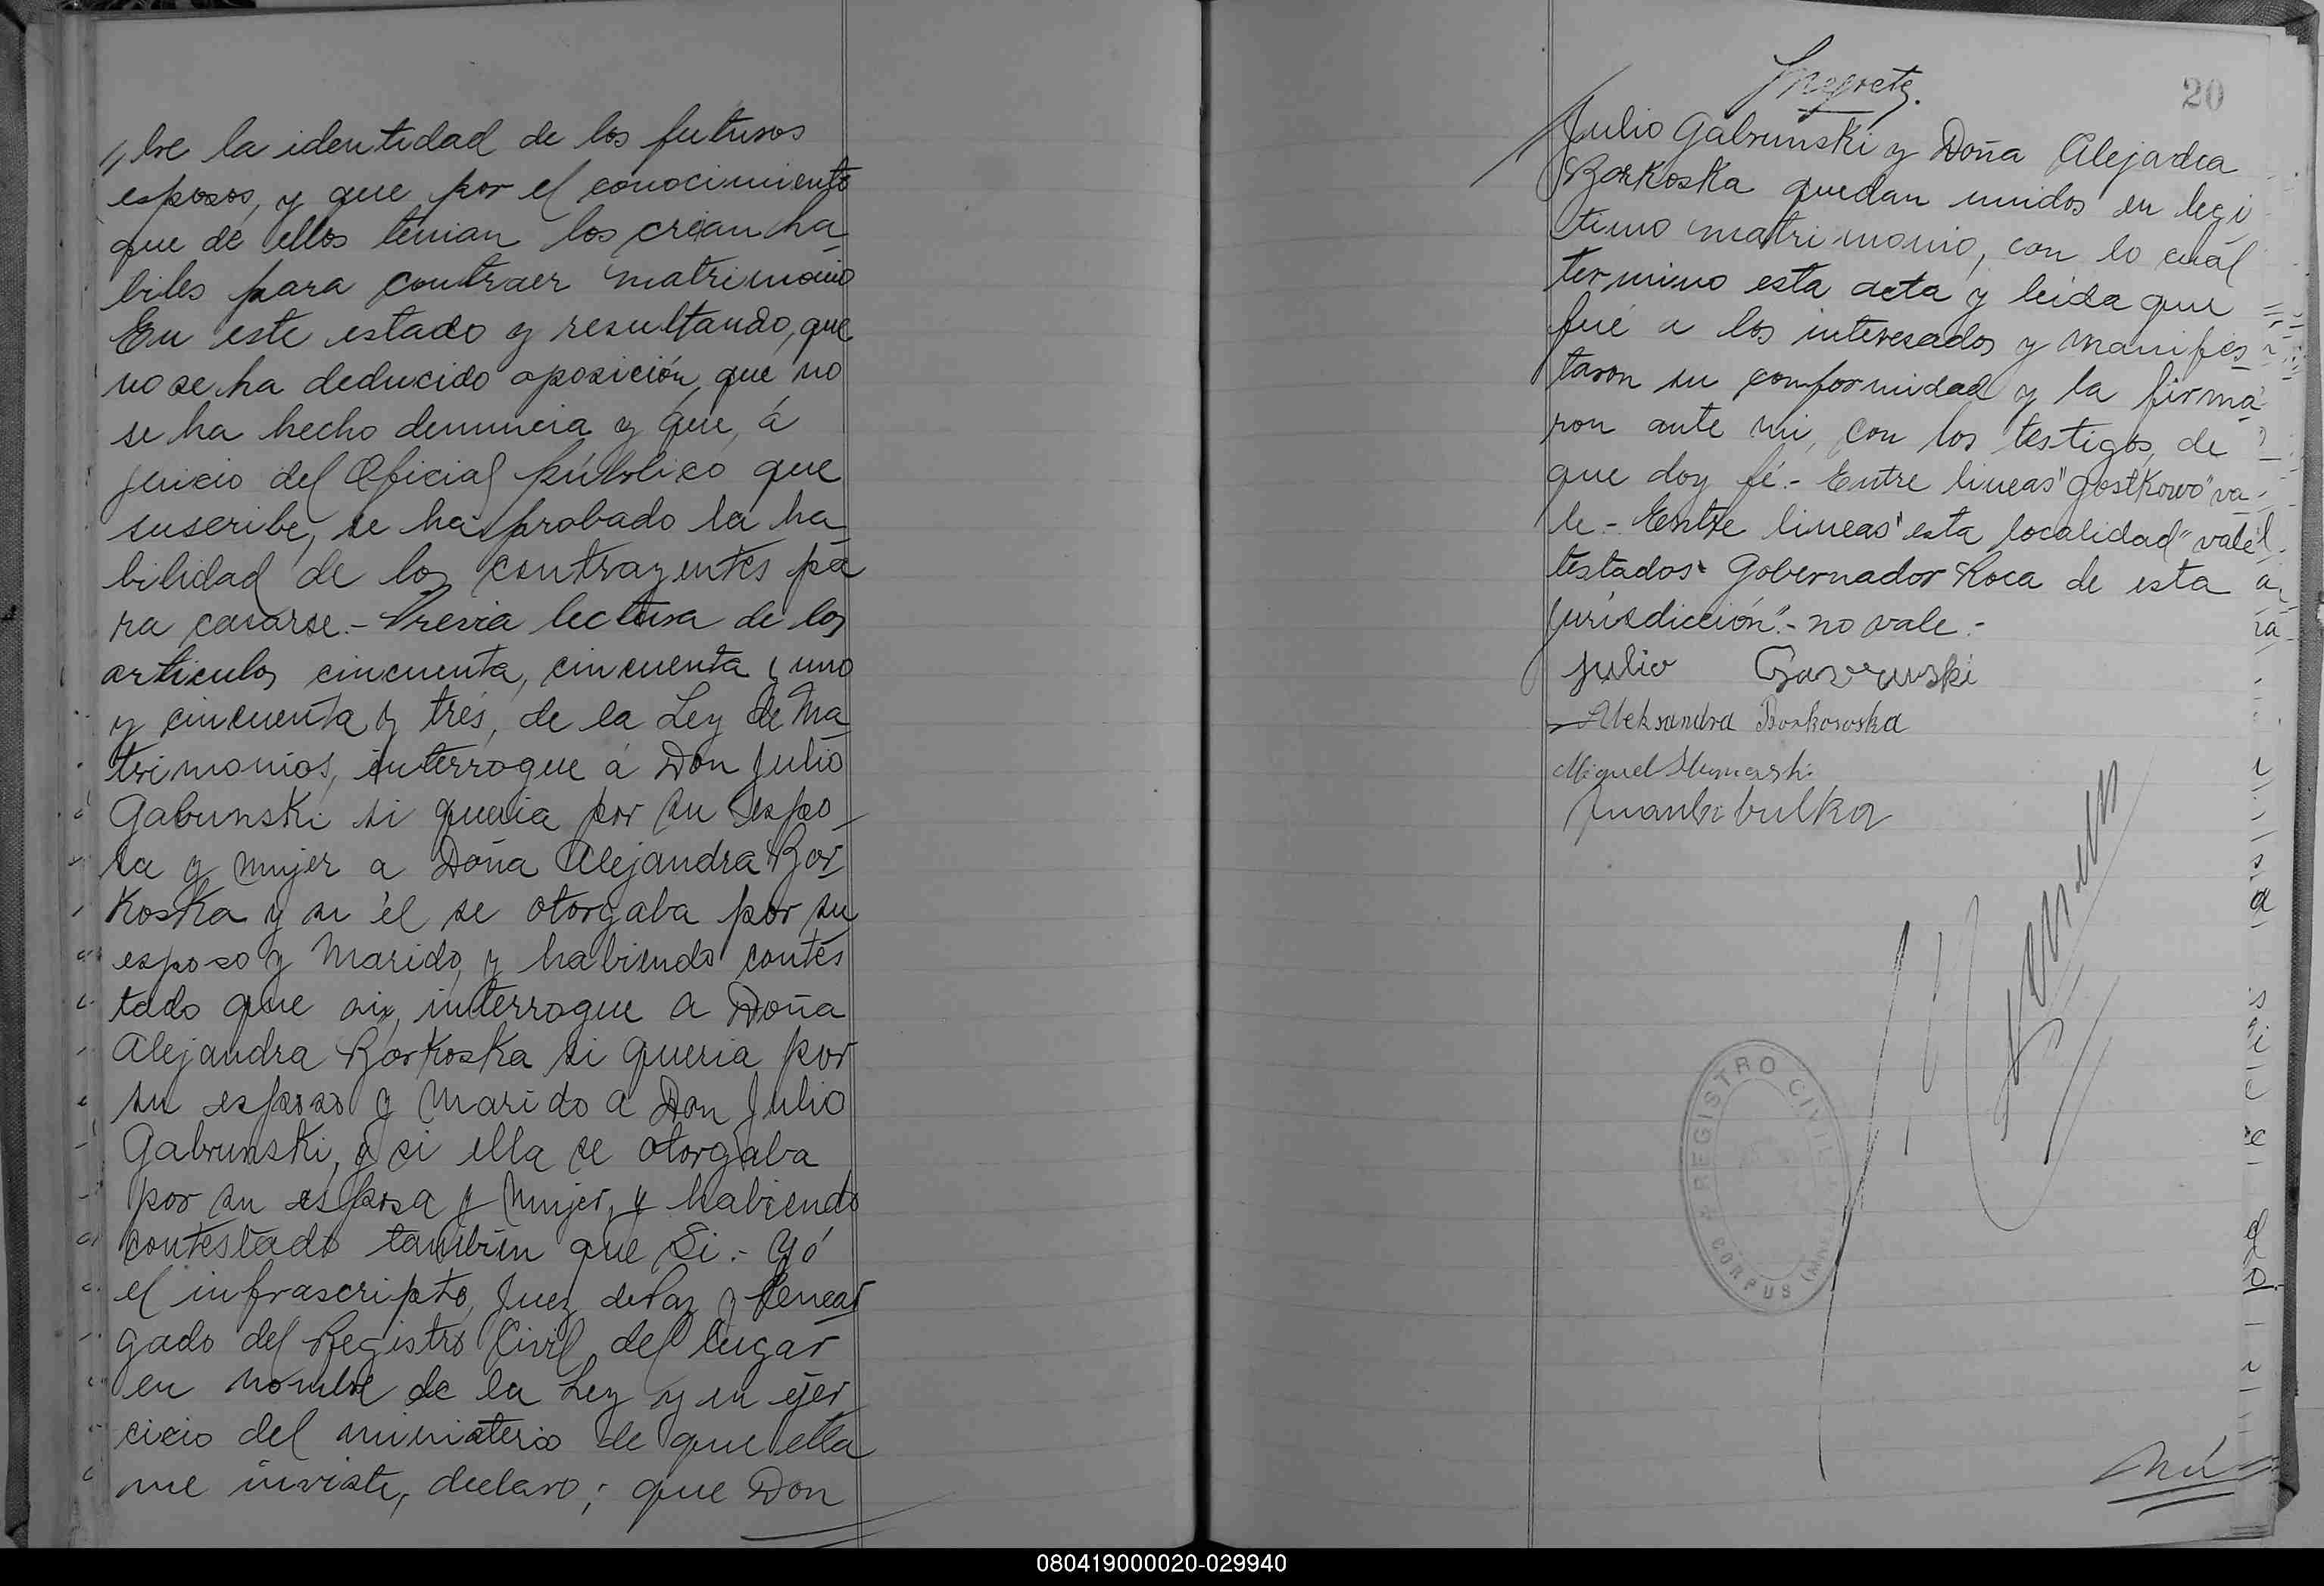 bre la identidad de los futuros
esposos, y que por el conocimiento
que de ellos tenian los crian ha_
biles para contraer matrimonio
En este estado y resultando, que
no se ha deducido oposición, que no
se ha hecho denuncia y que, á
juicio del Oficial público que
suscribe, se ha probado la ha_
bilidad de los contrayentes pa
ra casarse.- Previa lectura de los
articulos cincuenta, cincuenta y uno
y cincuenta y tres, de la Ley de Ma_
trimonios, interrogue á Don Julio
Gabunski si queria por su espo_
sa y mujer a Doña Alejandra Bor_
Koska y si él se otorgaba por su
esposo y Marido, y habiendo contes
tado que si, interrogue a Doña
Alejandra Borkoska si queria por
su esposo y Marido a Don Julio
Gabrunski, y si ella se otorgaba
por su esposa y mujer, y habiendo
contestado tambien que Si.- Yó
el infrascripto, Juez de Paz y Encar
gado del Registro Civil del lugar
en nombre de la Ley y en ejer_
cicio del ministerio de que ella
me inviste, declaro; que Don
20
Julio Gabrunski y Doña Alejadra
Borkoska quedan unidos en legi
timo matrimonio, con lo cuál
termino esta acta y leida que
fué a los interesados y manifes_
taron su conformidad y la firma_
ron ante mi, con los testigos, de
que doy fé.- Entre lineas "Gostkowo" va_
le.- Entre lineas "esta localidad" vale
testados "Gobernador Roca de esta
jurisdicción".- no vale.-
Julio Gawrunski
Aleksandra Borkowska
Miguel
REGISTRO CIVIL
CORPUS
080419000020-029940